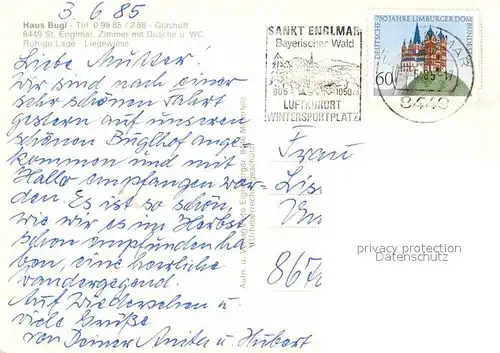 3. 6. 85
Haus Bugl - Tel. 0 99 65 / 2 88 - Glashütt
8449 St. Englmar, Zimmer mit Dusche u. WC
Ruhige Lage Liegewiese
Liebe Mutter!
Wir sind nach einer
sehr schönen Fahrt
gestern auf unseren
schönen Buglhof ange
kommen und mit
Hallo empfangen wor-
den. Es ist so schön,
wie wir es im Herbst
schon empfunden ha
ben, eine herrliche
Wandergegend.
Auf Wiedersehen u.
viele Grüße
von Deiner Anita u. Hubert
SANKT ENGLMAR
Bayerischer Wald
805 1050m
LUFTKURORT
WINTERSPORTPLATZ
750 JAHRE LIMBURGER DOM
DEUTSCHE BUNDESPOST
60
8449
Frau
Lis
867
privacy protection
Datenschutz
Urheberrechtlich geschützt